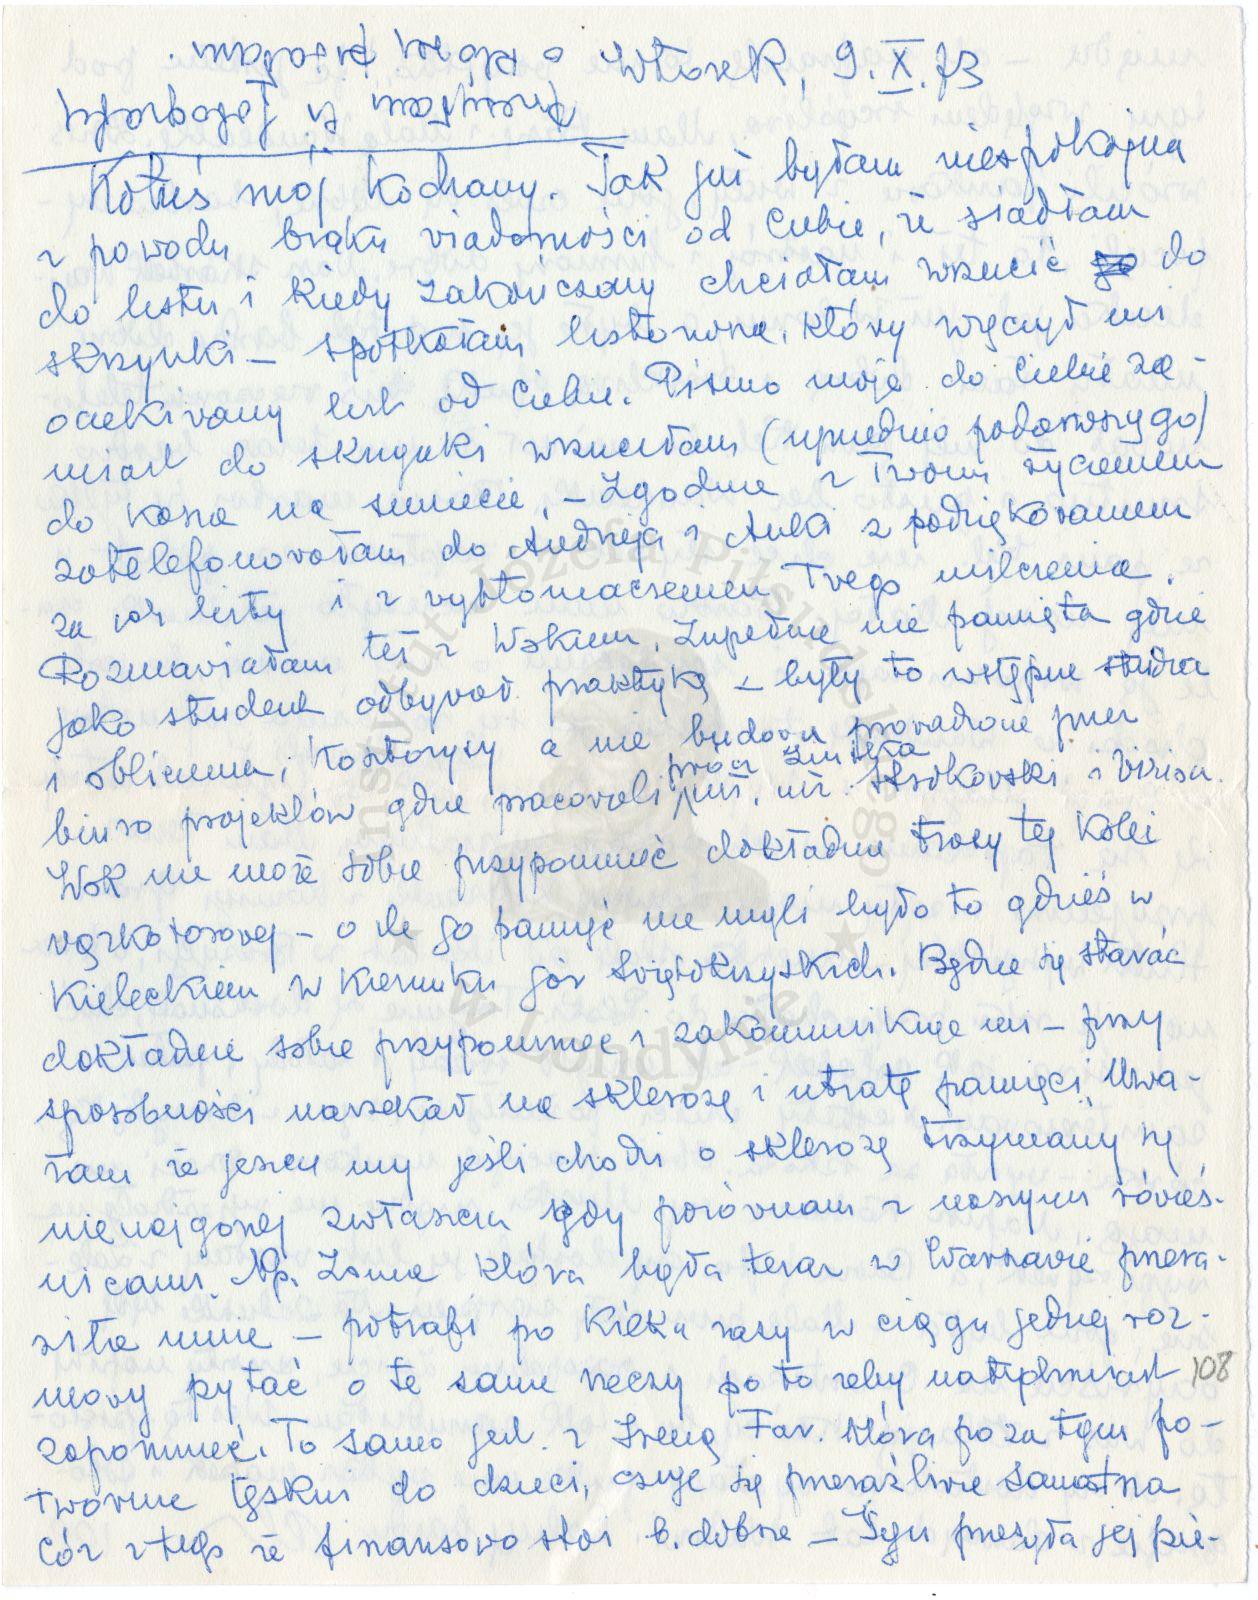 Wtorek, 9.X.73
Kotuś mój kochany. Tak już byłam niespokojna
z powodu braku wiadomości od Ciebie, że siadłam
do listu i kiedy zakończony chciałam wrzucić do
skrzynki – spotkałam listonosza, który wręczył mi
oczekiwany list od Ciebie. Pismo moje do Ciebie za-
miast do skrzynki wrzuciłam (uprzednio podarłszy go)
do kosza na śmiecie. – Zgodnie z Twoim życzeniem
zatelefonowałam do Andrzeja i Anki z podziękowaniem
za ich listy i z wytłomaczeniem Twego milczenia.
Rozmawiałam też z Wokiem. Zupełnie nie pamięta gdzie
jako student odbywał praktykę – były to wstępne studia
i obliczenia, kosztorysy a nie budowa prowadzone przez
biuro projektów gdzie pracowali prócz
inż. inż. i
Wok nie może sobie przypomnieć dokładnie trasy tej kolei
wąskotorowej – o ile go pamięć nie myli było to gdzieś w
Kieleckiem w kierunku gór Świętokrzyskich. Będzie się starać
dokładnie sobie przypomnieć i zakomunikuje mi – przy
sposobności narzekał na sklerozę i utratę pamięci. Uwa-
żam że jeszcze my jeśli chodzi o sklerozę trzymamy się
nienajgorzej zwłaszcza gdy porównam z naszymi rówieś-
nicami. Np. która była teraz w Warszawie przera-
ziła mnie – potrafi po kilka razy w ciągu jednej roz-
mowy pytać o te same rzeczy po to żeby natychmiast
zapomnieć. To samo jest z Ireną Fav. która poza tym po-
twornie tęskni do dzieci, czuje się przeraźliwie samotna
cóż z tego że finansowo stoi b. dobrze – przesyła jej pie-
108
Przesyłam Ci fotografię
o którą prosiłam.
Instytut Józefa Piłsudskiego
w Londynie